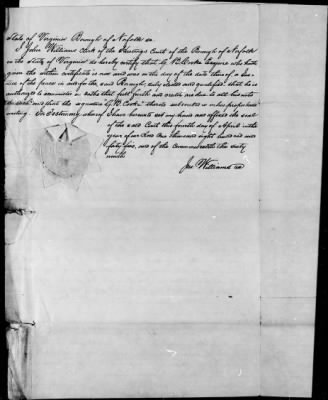 State of Virginia Borough of Norfolk ss.
I John Williams Clerk of the Hustings Court of the Borough of Norfolk
in the State of Virginia do hereby certify that W. B. Cooke Esquire who hath
given the within certificate is and was on the day of the date thereof a Jus-
tice of the peace in and for the said Borough duly elected and qualified that he is
authorized to administer oaths that full faith and credit are due to all his acts
as such and that the signature thereto subscribed is in his proper hand
writing. In testimony whereof I have hereunto set my hand and affixed the seal
of the said Court this fourth day of April in the
year of our Lord One thousand eight hundred and
forty five, and of the commonwealth the sixty
ninth
Jno Williams